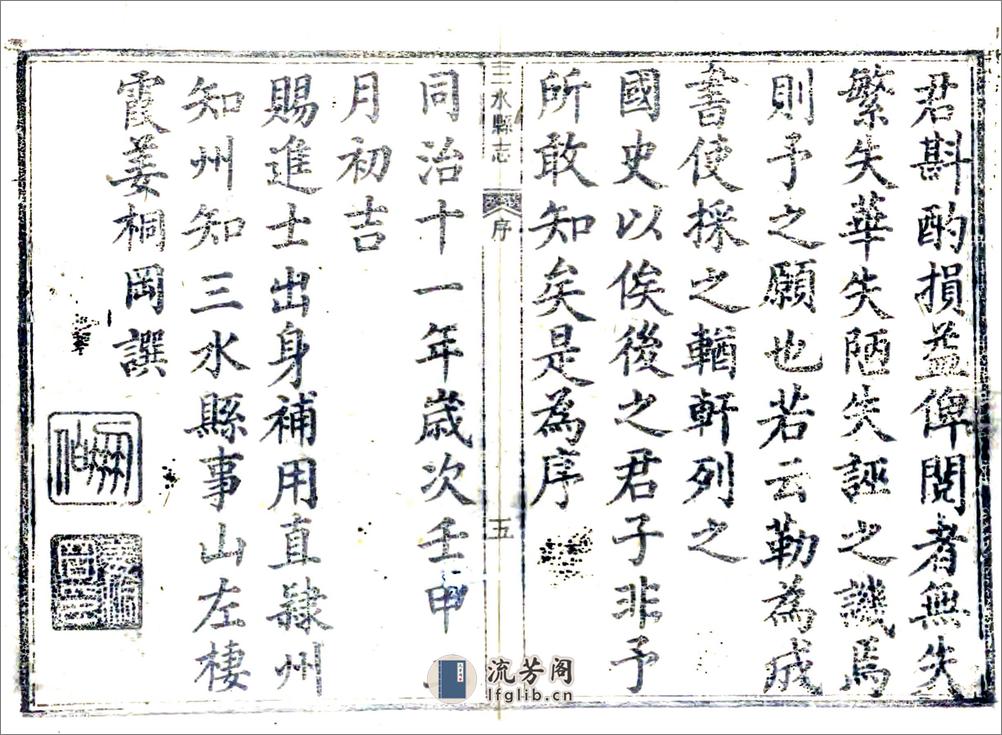 君斟酌損益俾閱者無失
繁失華失陋失誣之譏焉
則予之願也若云勒為成
書使採之輶軒列之
國史以俟後之君子非予
所敢知矣是為序
三水縣志
序
五
同治十一年歲次壬申
月初吉
賜進士出身補用直隸州
知州知三水縣事山左棲
霞姜桐岡譔
流芳阁
lfglib.cn